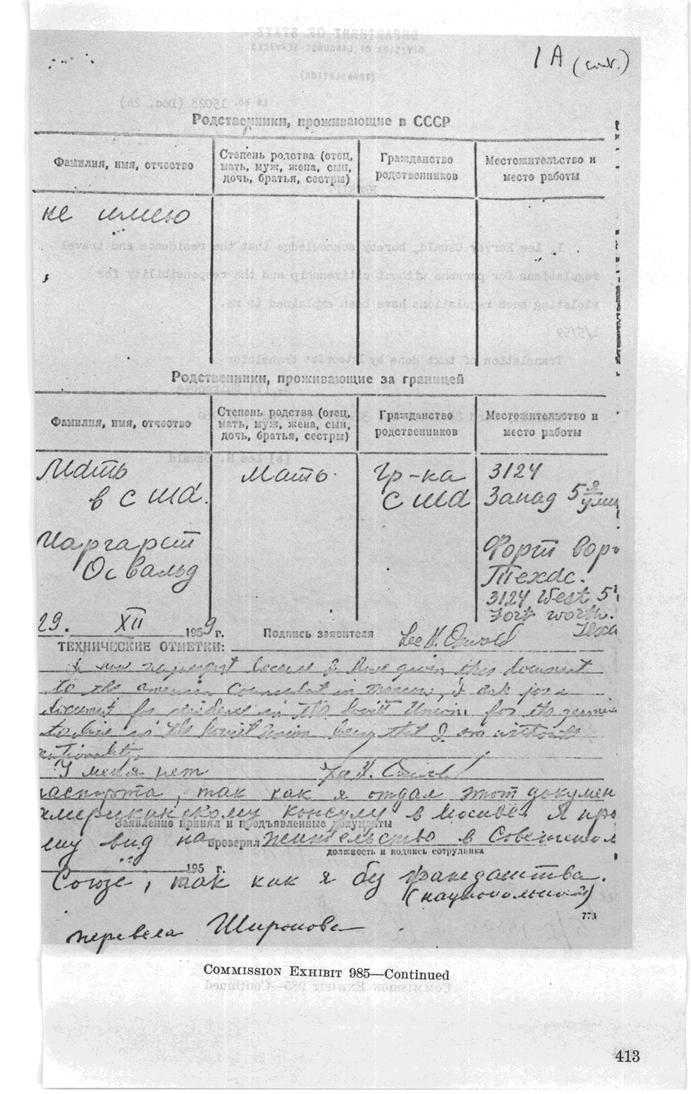 1A (cont.)
Родственники, проживающие в СССР
Фамилия, имя, отчество
Степень родства (отец, мать, муж, жена, сын, дочь, братья, сестры)
Гражданство родственников
Местожительство и место работы
не имею
Родственники, проживающие за границей
Фамилия, имя, отчество
Степень родства (отец, мать, муж, жена, сын, дочь, братья, сестры)
Гражданство родственников
Местожительство и место работы
Мать
в США.
Маргарет
Освальд
Мать
Гр-ка
США
3124
Запад 5я
улиц
Форт Вор
Техас.
3124 West 5
Fort Worth.
Texa
29. XII 1959 г. Подпись заявителя Lee H. Oswald
ТЕХНИЧЕСКИЕ ОТМЕТКИ:
I have given this document
to the american Consulate in Moscow, I ask for a
document for residence in the Soviet Union for the
to live in the Soviet Union being that I am without
nationality
У меня нет Lee H. Oswald
аспорта, так как я отдал этот докумен
америка​нскому консулу в Москве. Я про
Заявление принял и предъявленные документы
шу вид на проверил жительство в Советском
должность и подпись сотрудника
195 г.
Союзе, так как я без гражданства.
(национальности)
773
перевела Широкова
COMMISSION EXHIBIT 985—Continued
413